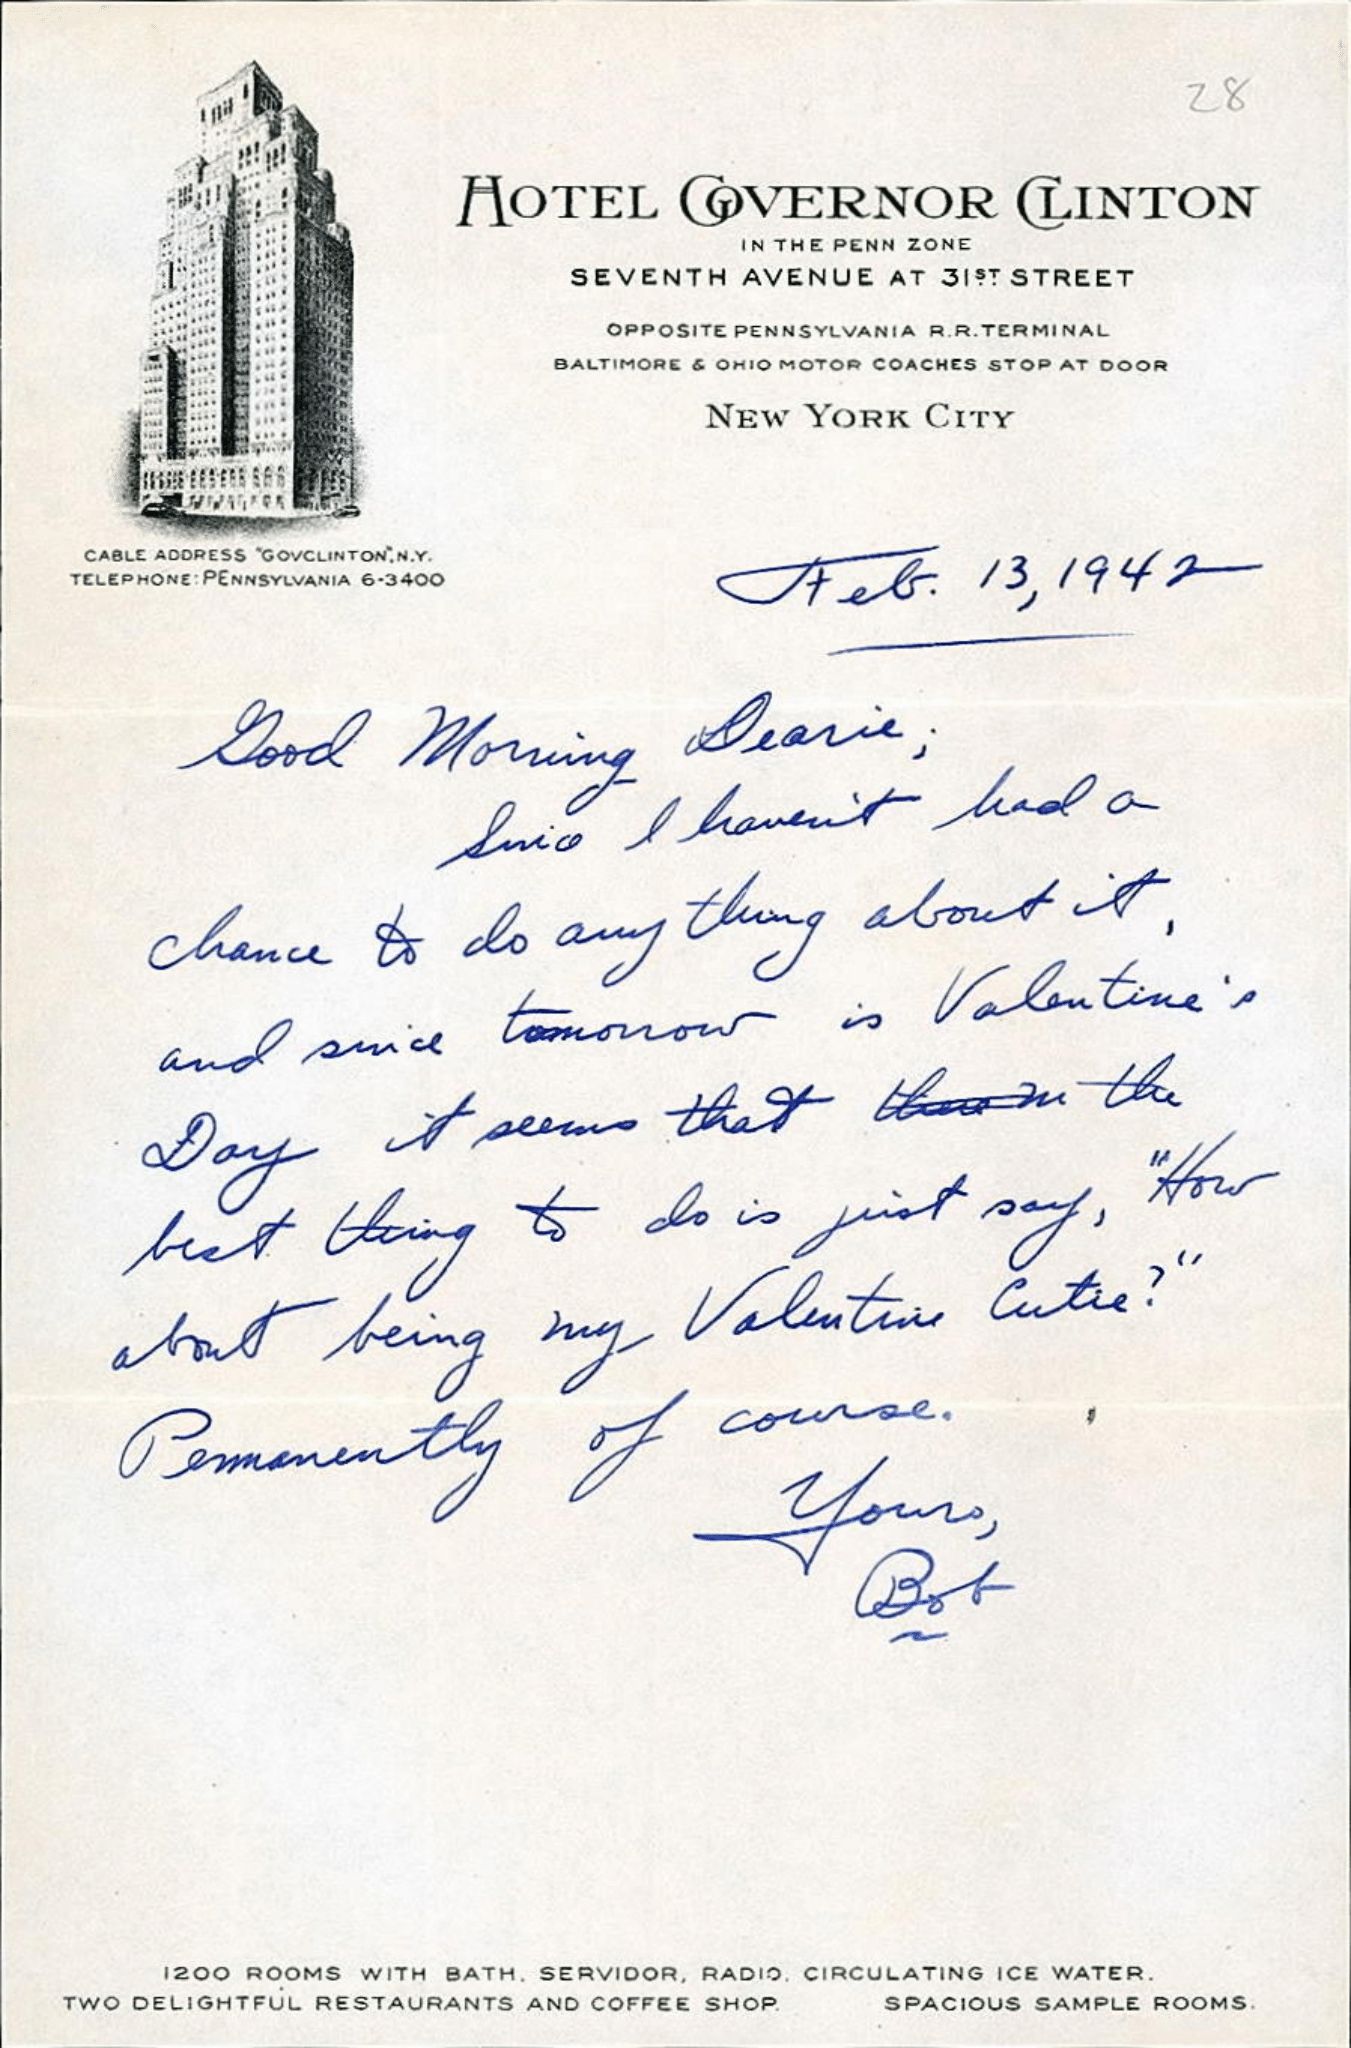 28
HOTEL GOVERNOR CLINTON
IN THE PENN ZONE
SEVENTH AVENUE AT 31ST STREET
OPPOSITE PENNSYLVANIA R.R. TERMINAL
BALTIMORE & OHIO MOTOR COACHES STOP AT DOOR
NEW YORK CITY
CABLE ADDRESS "GOVCLINTON", N.Y.
TELEPHONE: PENNSYLVANIA 6-3400
Feb. 13, 1942
Good Morning Dearie;
Since I haven't had a
chance to do any thing about it,
and since tomorrow is Valentine's
Day it seems that the
best thing to do is just say, "How
about being my Valentine Cutie?"
Permanently of course.
Yours,
Bob
1200 ROOMS WITH BATH, SERVIDOR, RADIO, CIRCULATING ICE WATER.
TWO DELIGHTFUL RESTAURANTS AND COFFEE SHOP. SPACIOUS SAMPLE ROOMS.